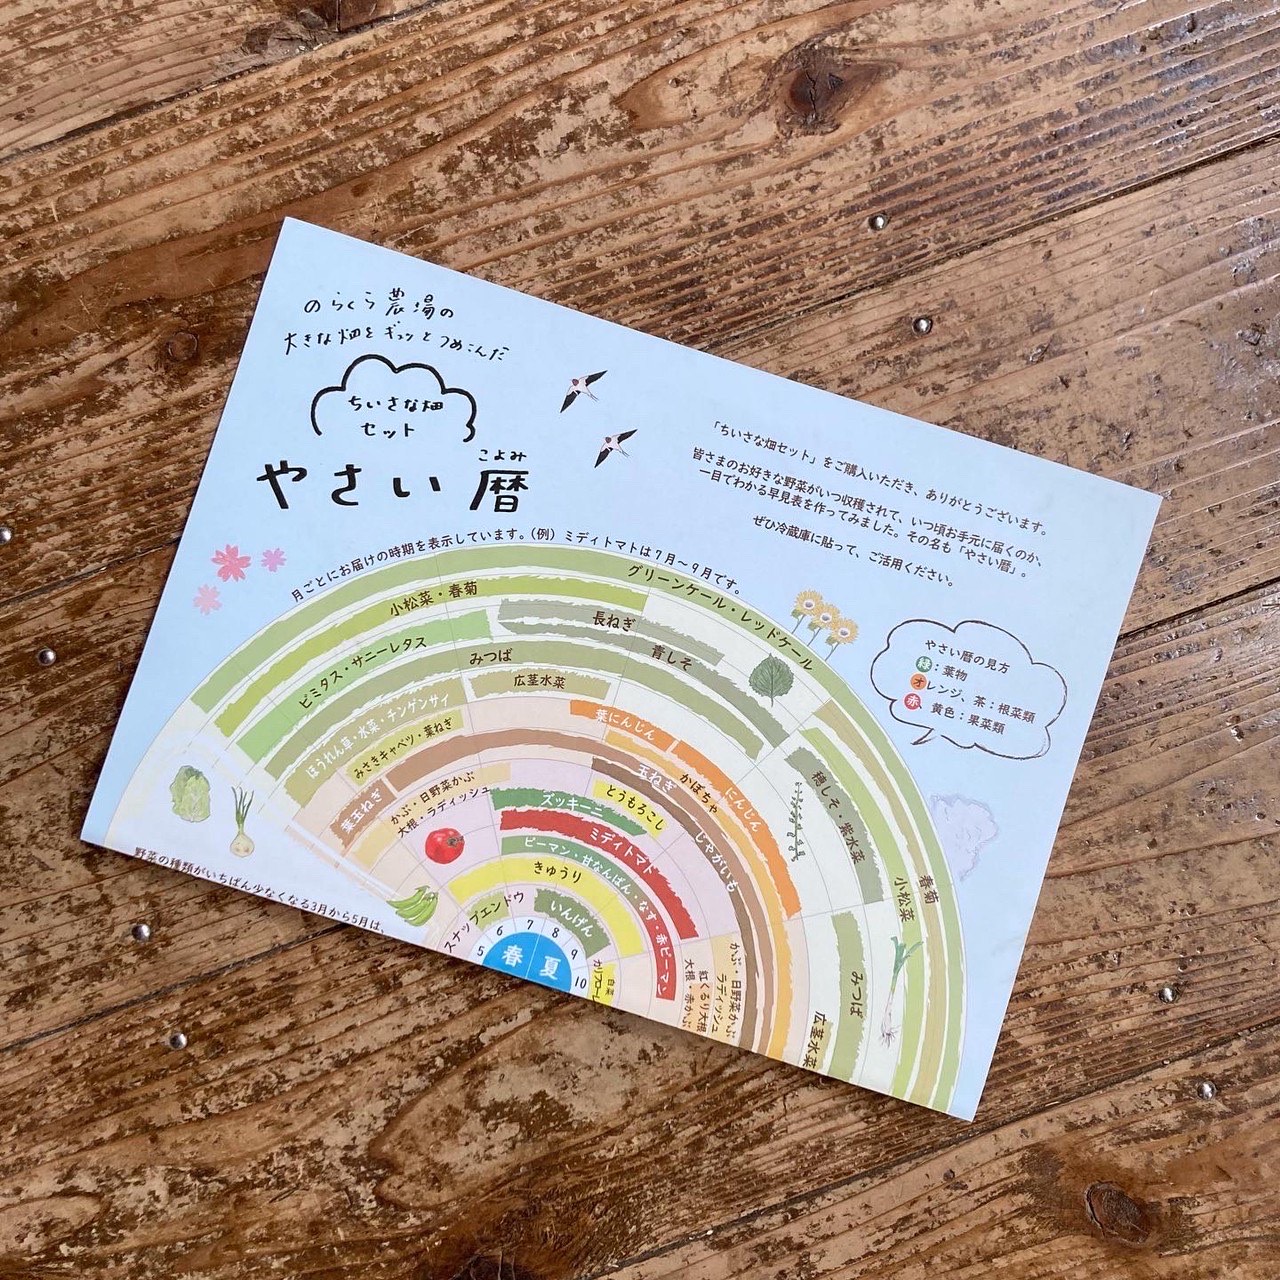 のらくら農場の
大きな畑をギュッとつめこんだ
ちいさな畑
セット
こよみ
やさい暦
「ちいさな畑セット」をご購入いただき、ありがとうございます。
皆さまのお好きな野菜がいつ収穫されて、いつ頃お手元に届くのか、
一目でわかる早見表を作ってみました。その名も「やさい暦」。
ぜひ冷蔵庫に貼って、ご活用ください。
月ごとにお届けの時期を表示しています。(例) ミディトマトは7月〜9月です。
やさい暦の見方
緑:葉物
オレンジ、茶:根菜類
赤、黄色:果菜類
グリーンケール・レッドケール
小松菜・春菊
長ねぎ
ビミタス・サニーレタス
青しそ
みつば
広茎水菜
ほうれん草・水菜・チンゲンサイ
みさきキャベツ・葉ねぎ
葉にんじん
にんじん
穂しそ・紫水菜
春菊
小松菜
葉玉ねぎ
玉ねぎ
かぼちゃ
かぶ・日野菜かぶ
大根・ラディッシュ
とうもろこし
じゃがいも
ズッキーニ
ミディトマト
ピーマン・甘なんばん・なす・赤ピーマン
きゅうり
スナップエンドウ
いんげん
みつば
広茎水菜
かぶ・日野菜かぶ
ラディッシュ
紅くるり大根
大根・赤かぶ
白菜
カリフロール
5
6
7
8
9
10
春 夏
野菜の種類がいちばん少なくなる3月から5月は、